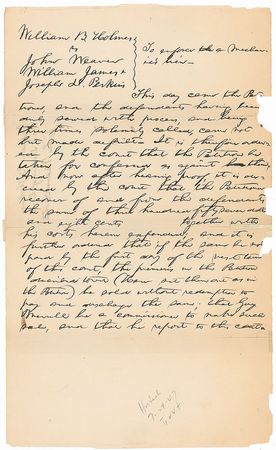 William B Holmes
vs
John Weaver
William James &
Joseph D. Perkins
To enforce a Mechan
ic's lien
This day came the Peti
tioner, and the defendants having been
duly served with process, and being
three times solemnly called, came not
but made default. It is therefore order
ed by the court that the Petition be
taken for confessed as against them.
And now after hearing proof, it is or
dered by the court that the Petitioner
recover of and from the defendants
the sum of three hundred fifty seven dolls
and eight cents together with
his costs herein expended, and it is
further ordered that if the same be not
paid by the first day of the next term
of this court, the premises in the Petition
described
the Petition) be sold without redemption to
pay and discharge the same: that Guy
be a commissioner to make such
sale, and that he report to this court